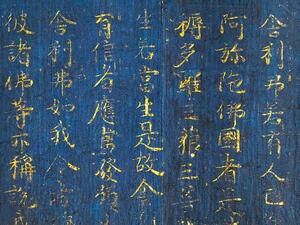 舍利弗若有人已
阿弥陀佛國者是
耨多羅三藐三
生若當生是故舍
有信者應當發願
舍利弗如我今者
彼諸佛等亦稱說